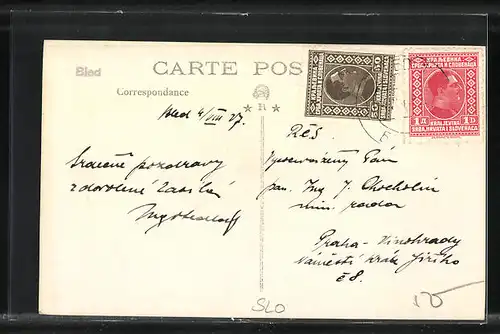 Bled
CARTE POS
Correspondance
R
Bled 4/VIII 27.
КРАЉЕВИНА
СРБА, ХРВАТА И СЛОВЕНАЦА
1 Д 1 D
KRALJEVINA
SRBA, HRVATA I SLOVENACA
Srdečné pozdravy
z dovolené zasílá
RČS.
Vysocevážený Pán
pan. Ing. J.
min. rada
Praha - Vinohrady
Náměstí krále Jiřího
č8.
SLO